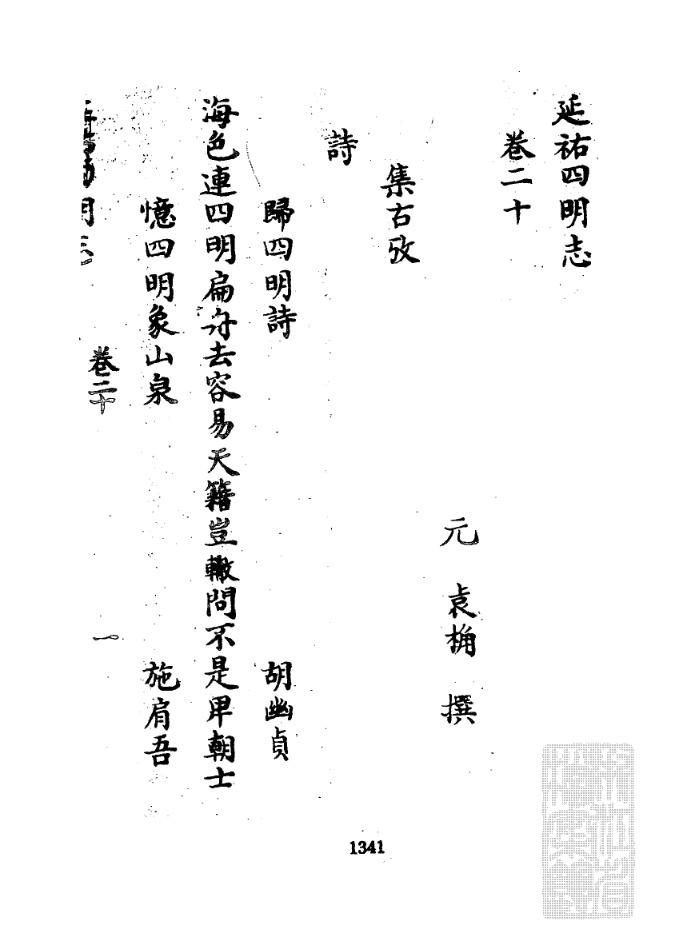 延祐四明志
卷二十
元 袁桷 撰
集古攷
詩
歸四明詩 胡幽貞
海色連四明扁舟去容易天籍豈輙問不是卑朝士
憶四明象山泉 施肩吾
卷二十 一
1341